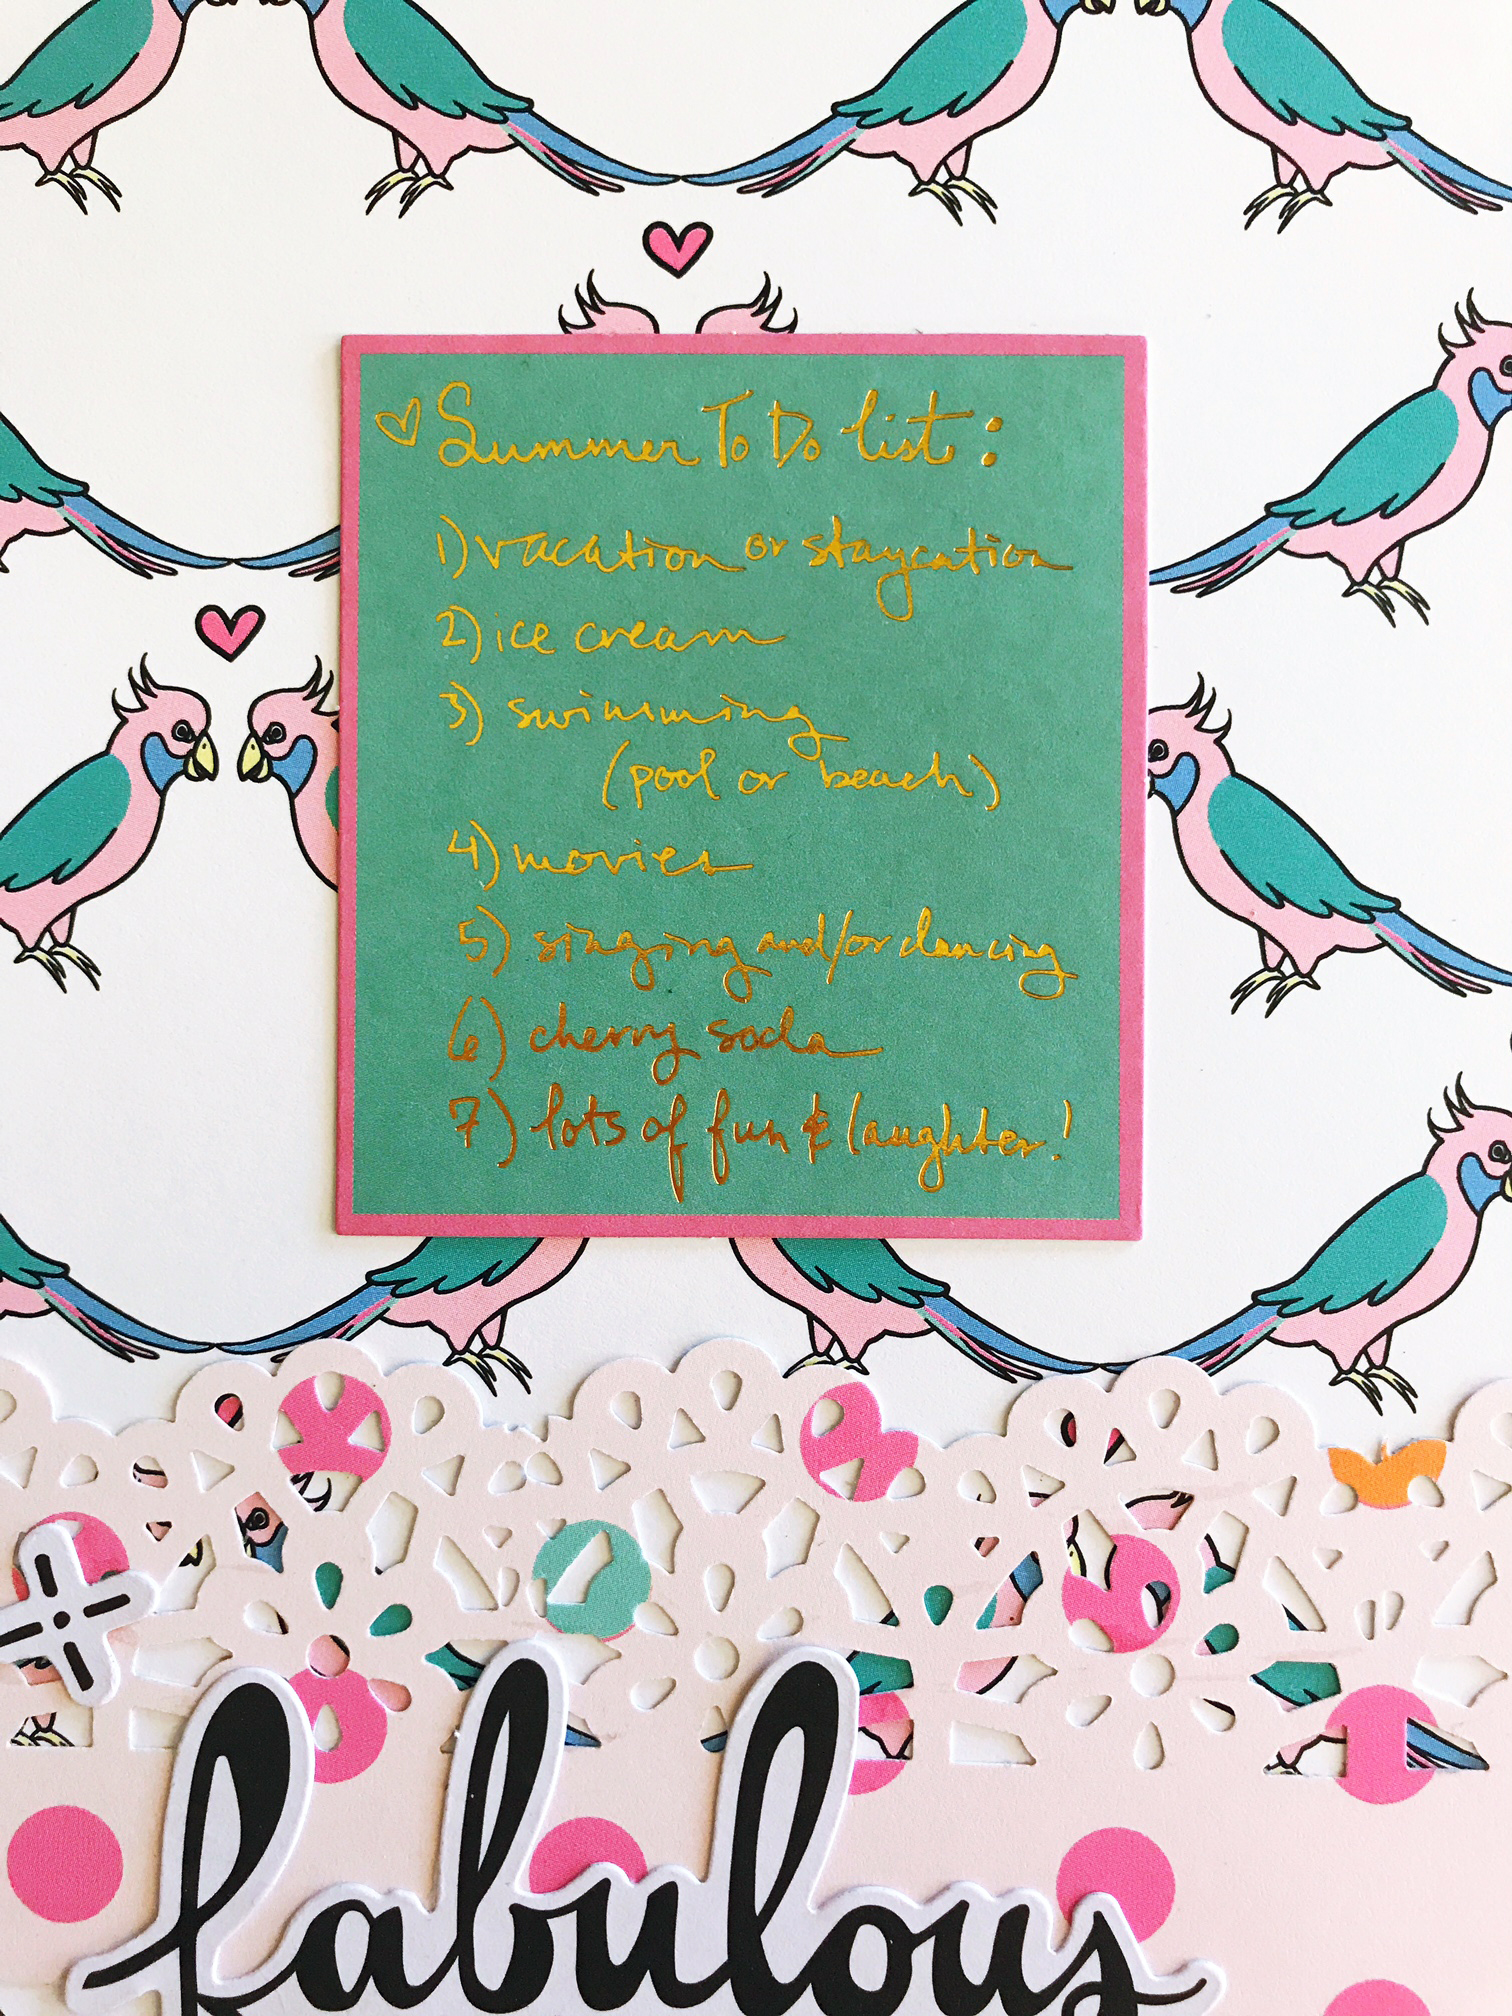 ♡ Summer To Do list:
1) vacation or staycation
2) ice cream
3) swimming
(pool or beach)
4) movies
5) singing and/or dancing
6) cherry soda
7) lots of fun & laughter!
fabulous